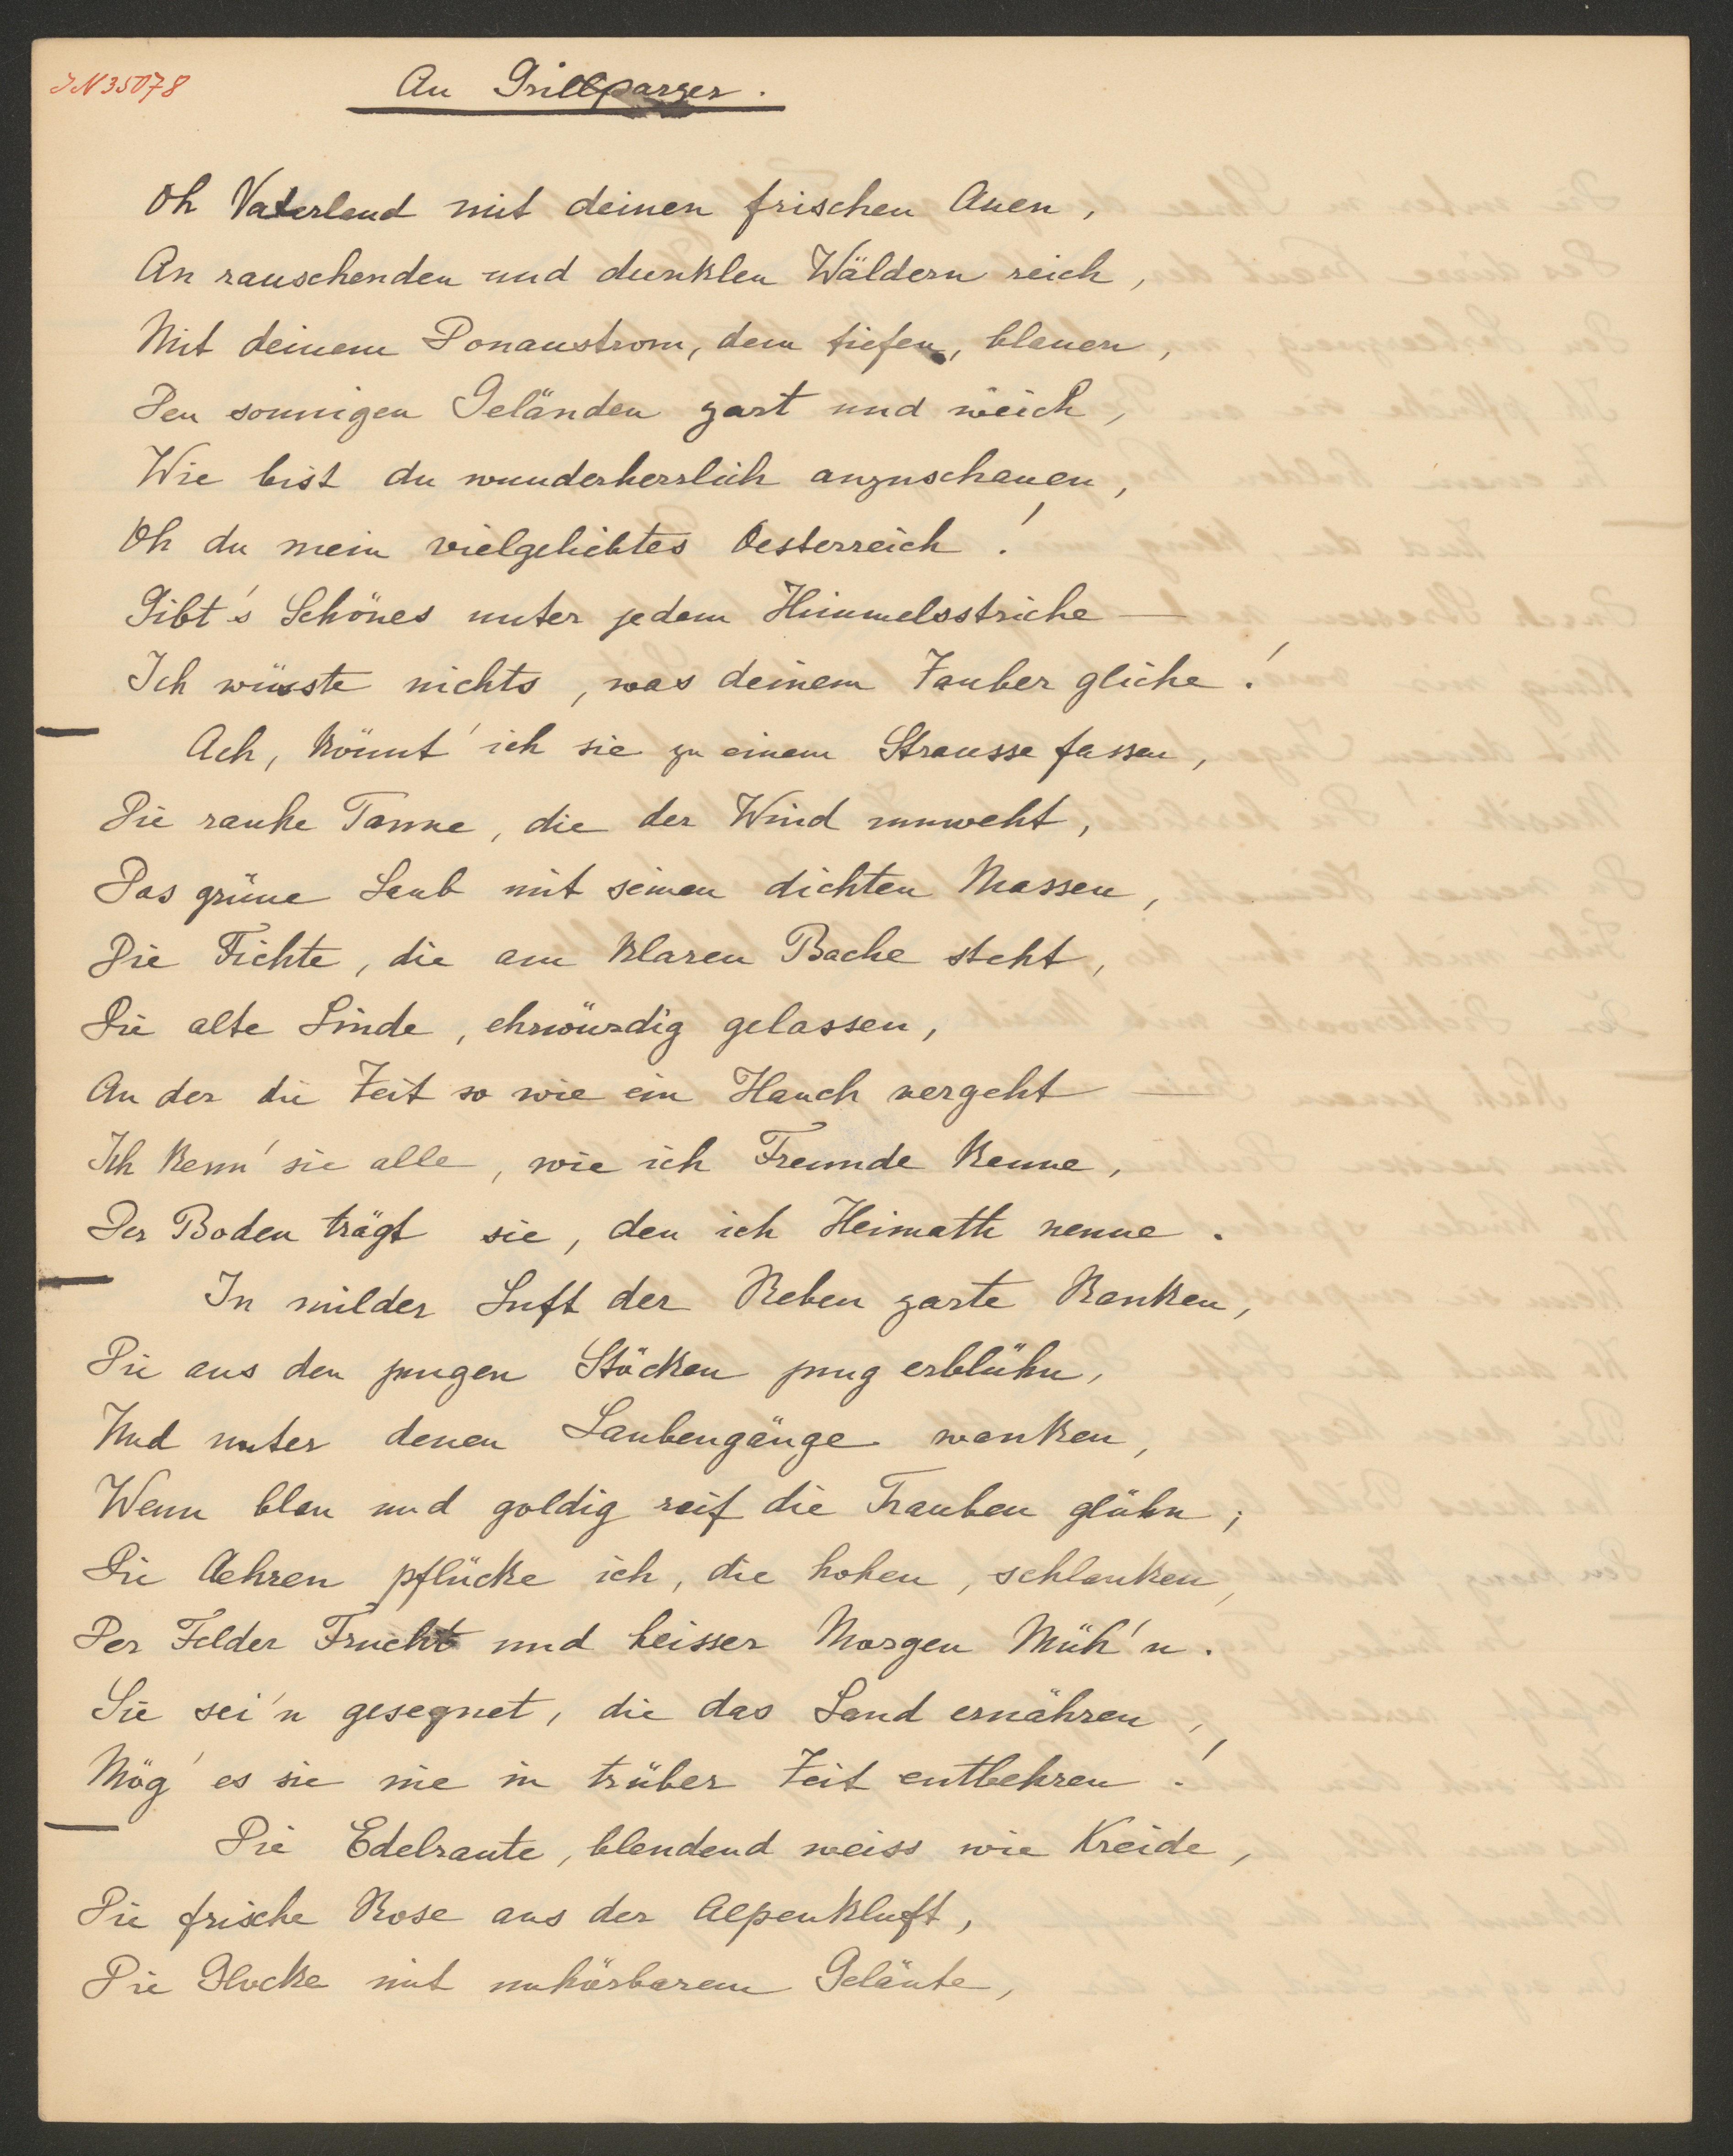 JN 35078
An Grillparzer.
Oh Vaterland mit deinen frischen Auen,
An rauschenden und dunklen Wäldern reich,
Mit deinem Donaustrom, dem tiefen, blauen,
Den sonnigen Geländen zart und weich,
Wie bist du wunderherrlich anzuschauen,
Oh du mein vielgeliebtes Oesterreich!
Gibt's Schönes unter jedem Himmelsstriche —
Ich wüsste nichts, was deinem Zauber gliche!
Ach, könnt' ich sie zu einem Strausse fassen,
Die rauhe Tanne, die der Wind umweht,
Das grüne Laub mit seinen dichten Massen,
Die Fichte, die am klaren Bache steht,
Die alte Linde, ehrwürdig gelassen,
An der die Zeit so wie ein Hauch vergeht —
Ich kenn' sie alle, wie ich Freunde kenne,
Der Boden trägt sie, den ich Heimath nenne.
In milder Luft der Reben zarte Ranken,
Die aus den jungen Stöcken jung erblühn,
Und unter denen Laubengänge wanken,
Wenn blau und goldig reif die Trauben glühn;
Die Aehren pflücke ich, die hohen, schlanken,
Der Felder Frucht und heisser Morgen Müh'n.
Sie sei'n gesegnet, die das Land ernähren,
Mög' es sie nie in trüber Zeit entbehren!
Die Edelraute, blendend weiss wie Kreide,
Die frische Rose aus der Alpenkluft,
Die Glocke mit unhörbarem Geläute,